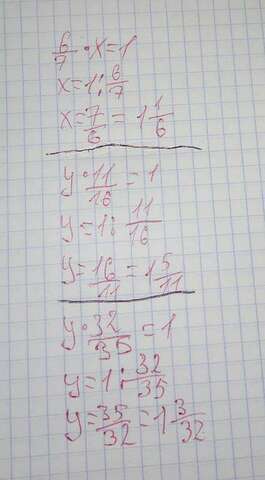 6/7 · x = 1
x = 1 : 6/7
x = 7/6 = 1 1/6
y · 11/16 = 1
y = 1 : 11/16
y = 16/11 = 1 5/11
y · 32/35 = 1
y = 1 : 32/35
y = 35/32 = 1 3/32